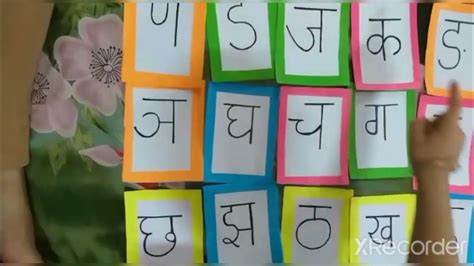 ण ड ज क ङ
ञ घ च ग
छ झ ठ ख
XRecorder